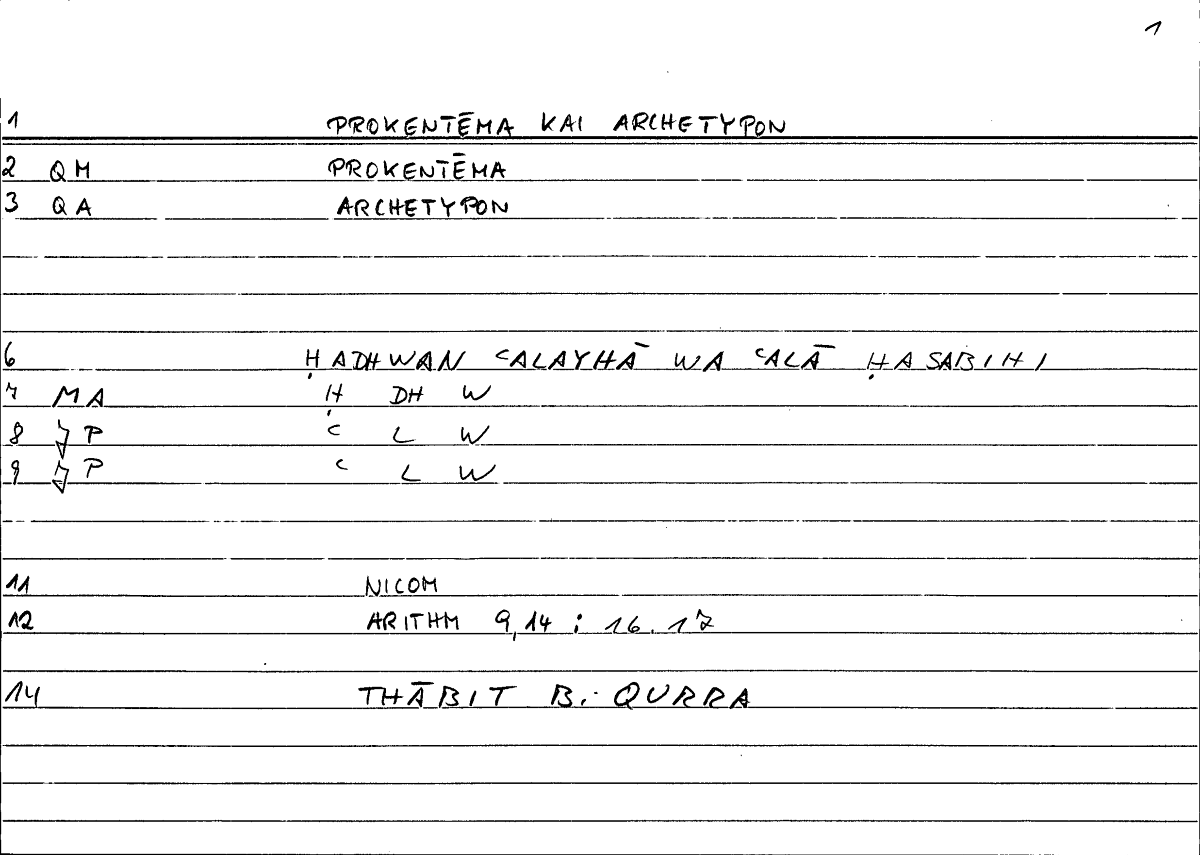 1
1 PROKENTĒMA KAI ARCHETYPON
2 QM PROKENTĒMA
3 QA ARCHETYPON
6 ḤADHWAN ʿALAYHĀ WA ʿALĀ ḤASABIHI
7 MA Ḥ DH W
8 P ʿ L W
9 P ʿ L W
11 NICOM
12 ARITHM 9,14 ; 16.17
14 THĀBIT B. QURRA